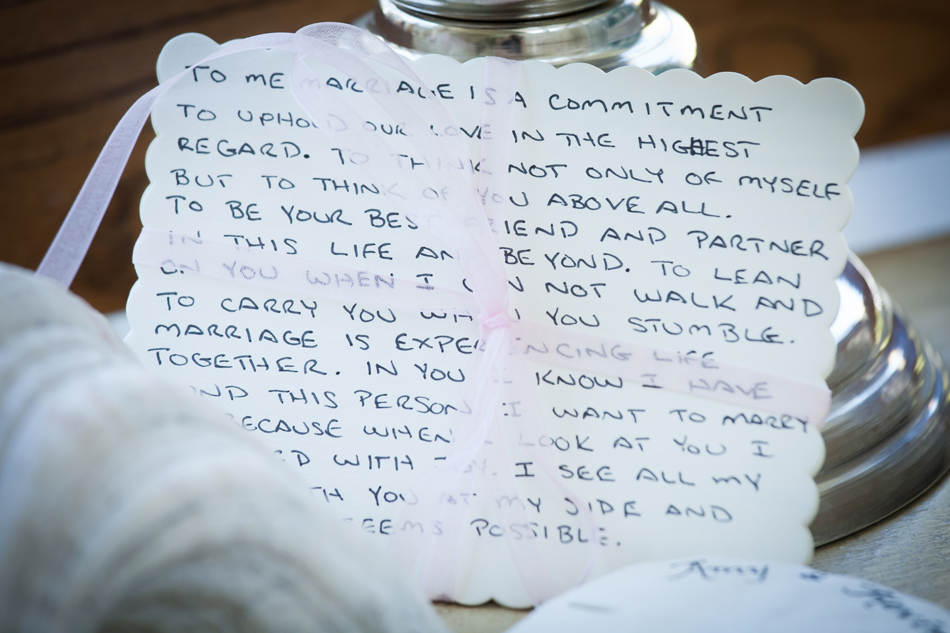 TO ME MARRIAGE IS A COMMITMENT
TO UPHOLD OUR LOVE IN THE HIGHEST
REGARD. TO THINK NOT ONLY OF MYSELF
BUT TO THINK OF YOU ABOVE ALL.
TO BE YOUR BEST FRIEND AND PARTNER
IN THIS LIFE AND BEYOND. TO LEAN
ON YOU WHEN I CAN NOT WALK AND
TO CARRY YOU WHEN YOU STUMBLE.
MARRIAGE IS EXPERIENCING LIFE
TOGETHER. IN YOU I KNOW I HAVE
THIS PERSON I WANT TO MARRY
BECAUSE WHEN I LOOK AT YOU I
WITH JOY. I SEE ALL MY
YOU AT MY SIDE AND
SEEMS POSSIBLE.
Amy